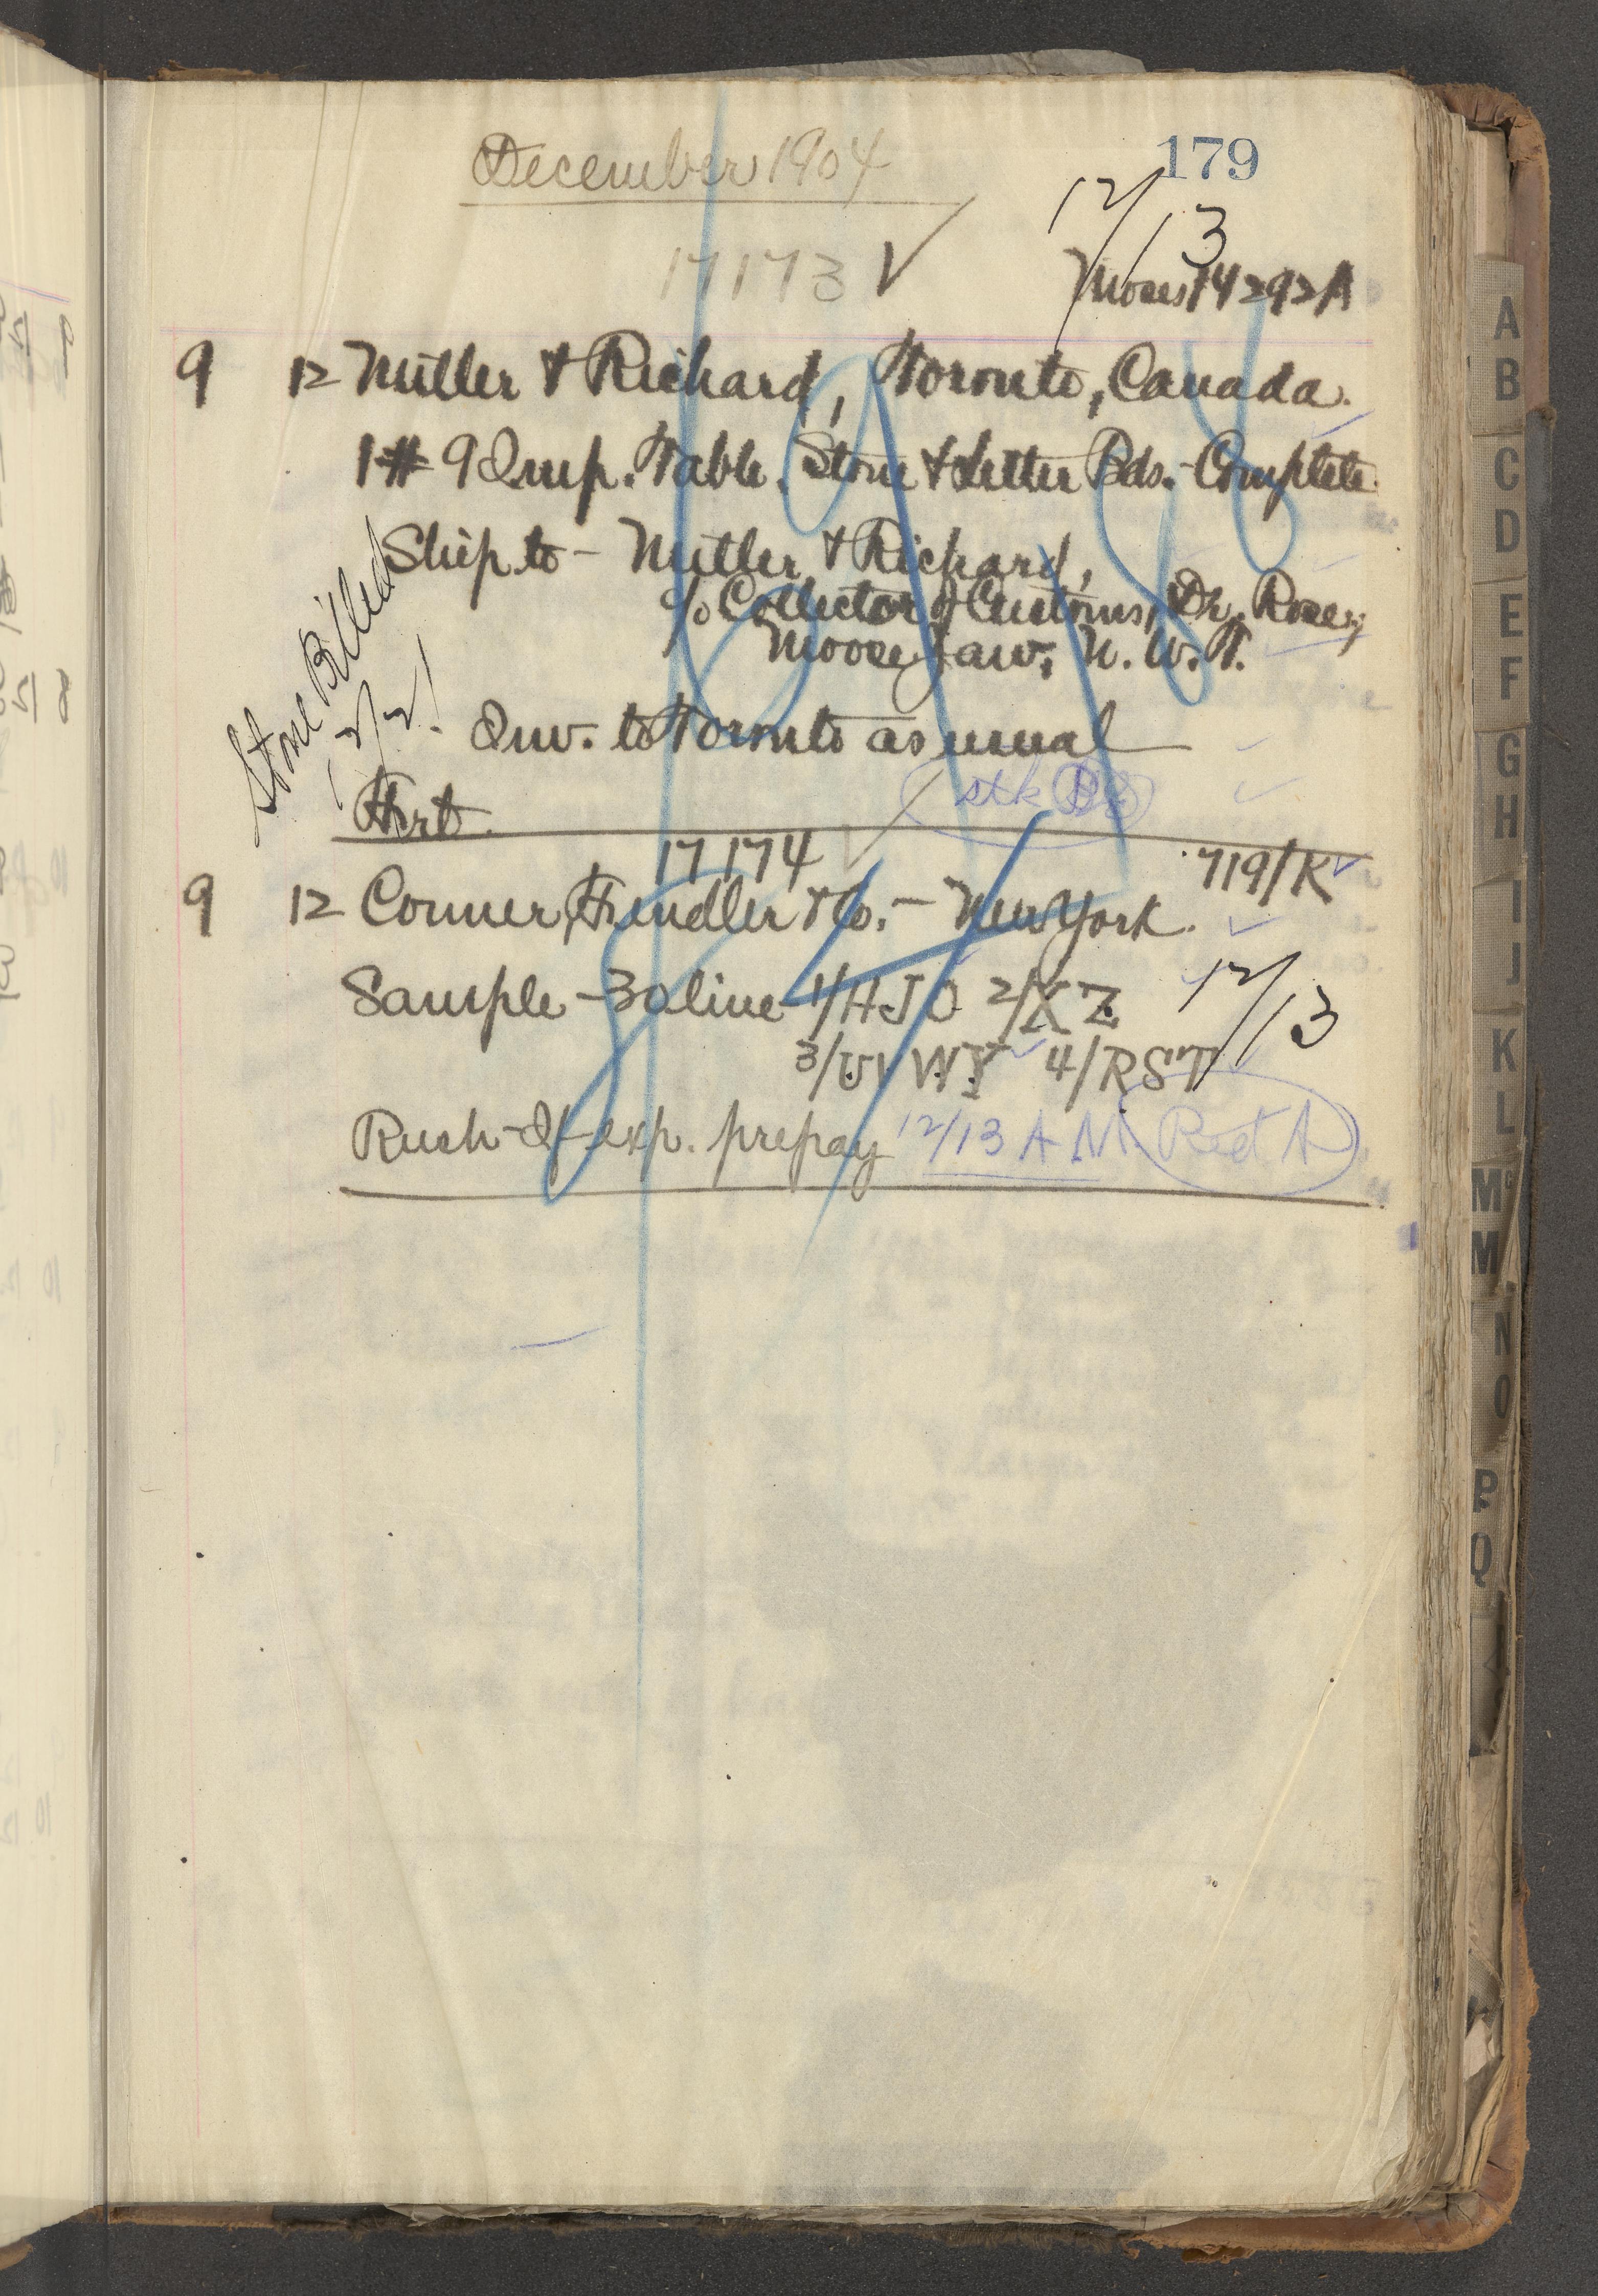 179
December 1904
12/13
17173 ✓
Moses 14292A
9 12 Miller & Richard, Toronto, Canada.
1 # 9 Imp. Table, Stone & Letter Bds. Complete.
Ship to - Miller & Richard,
c/o Collector of Customs,
Moose Jaw, N. W. T.
Stone Billed
12/21
Inv. to Toronto as usual
Frt.
stk
17174 719/K
9 12 Conner, Fendler & Co. - New York.
Sample - 30 line 1/HJO 2/XZ
12/13
3/UVWY 4/RST
Rush - If exp. prepay 12/13 AM Red A
A
B
C
D
E
F
G
H
I
J
K
L
Mc
M
N
O
P
Q